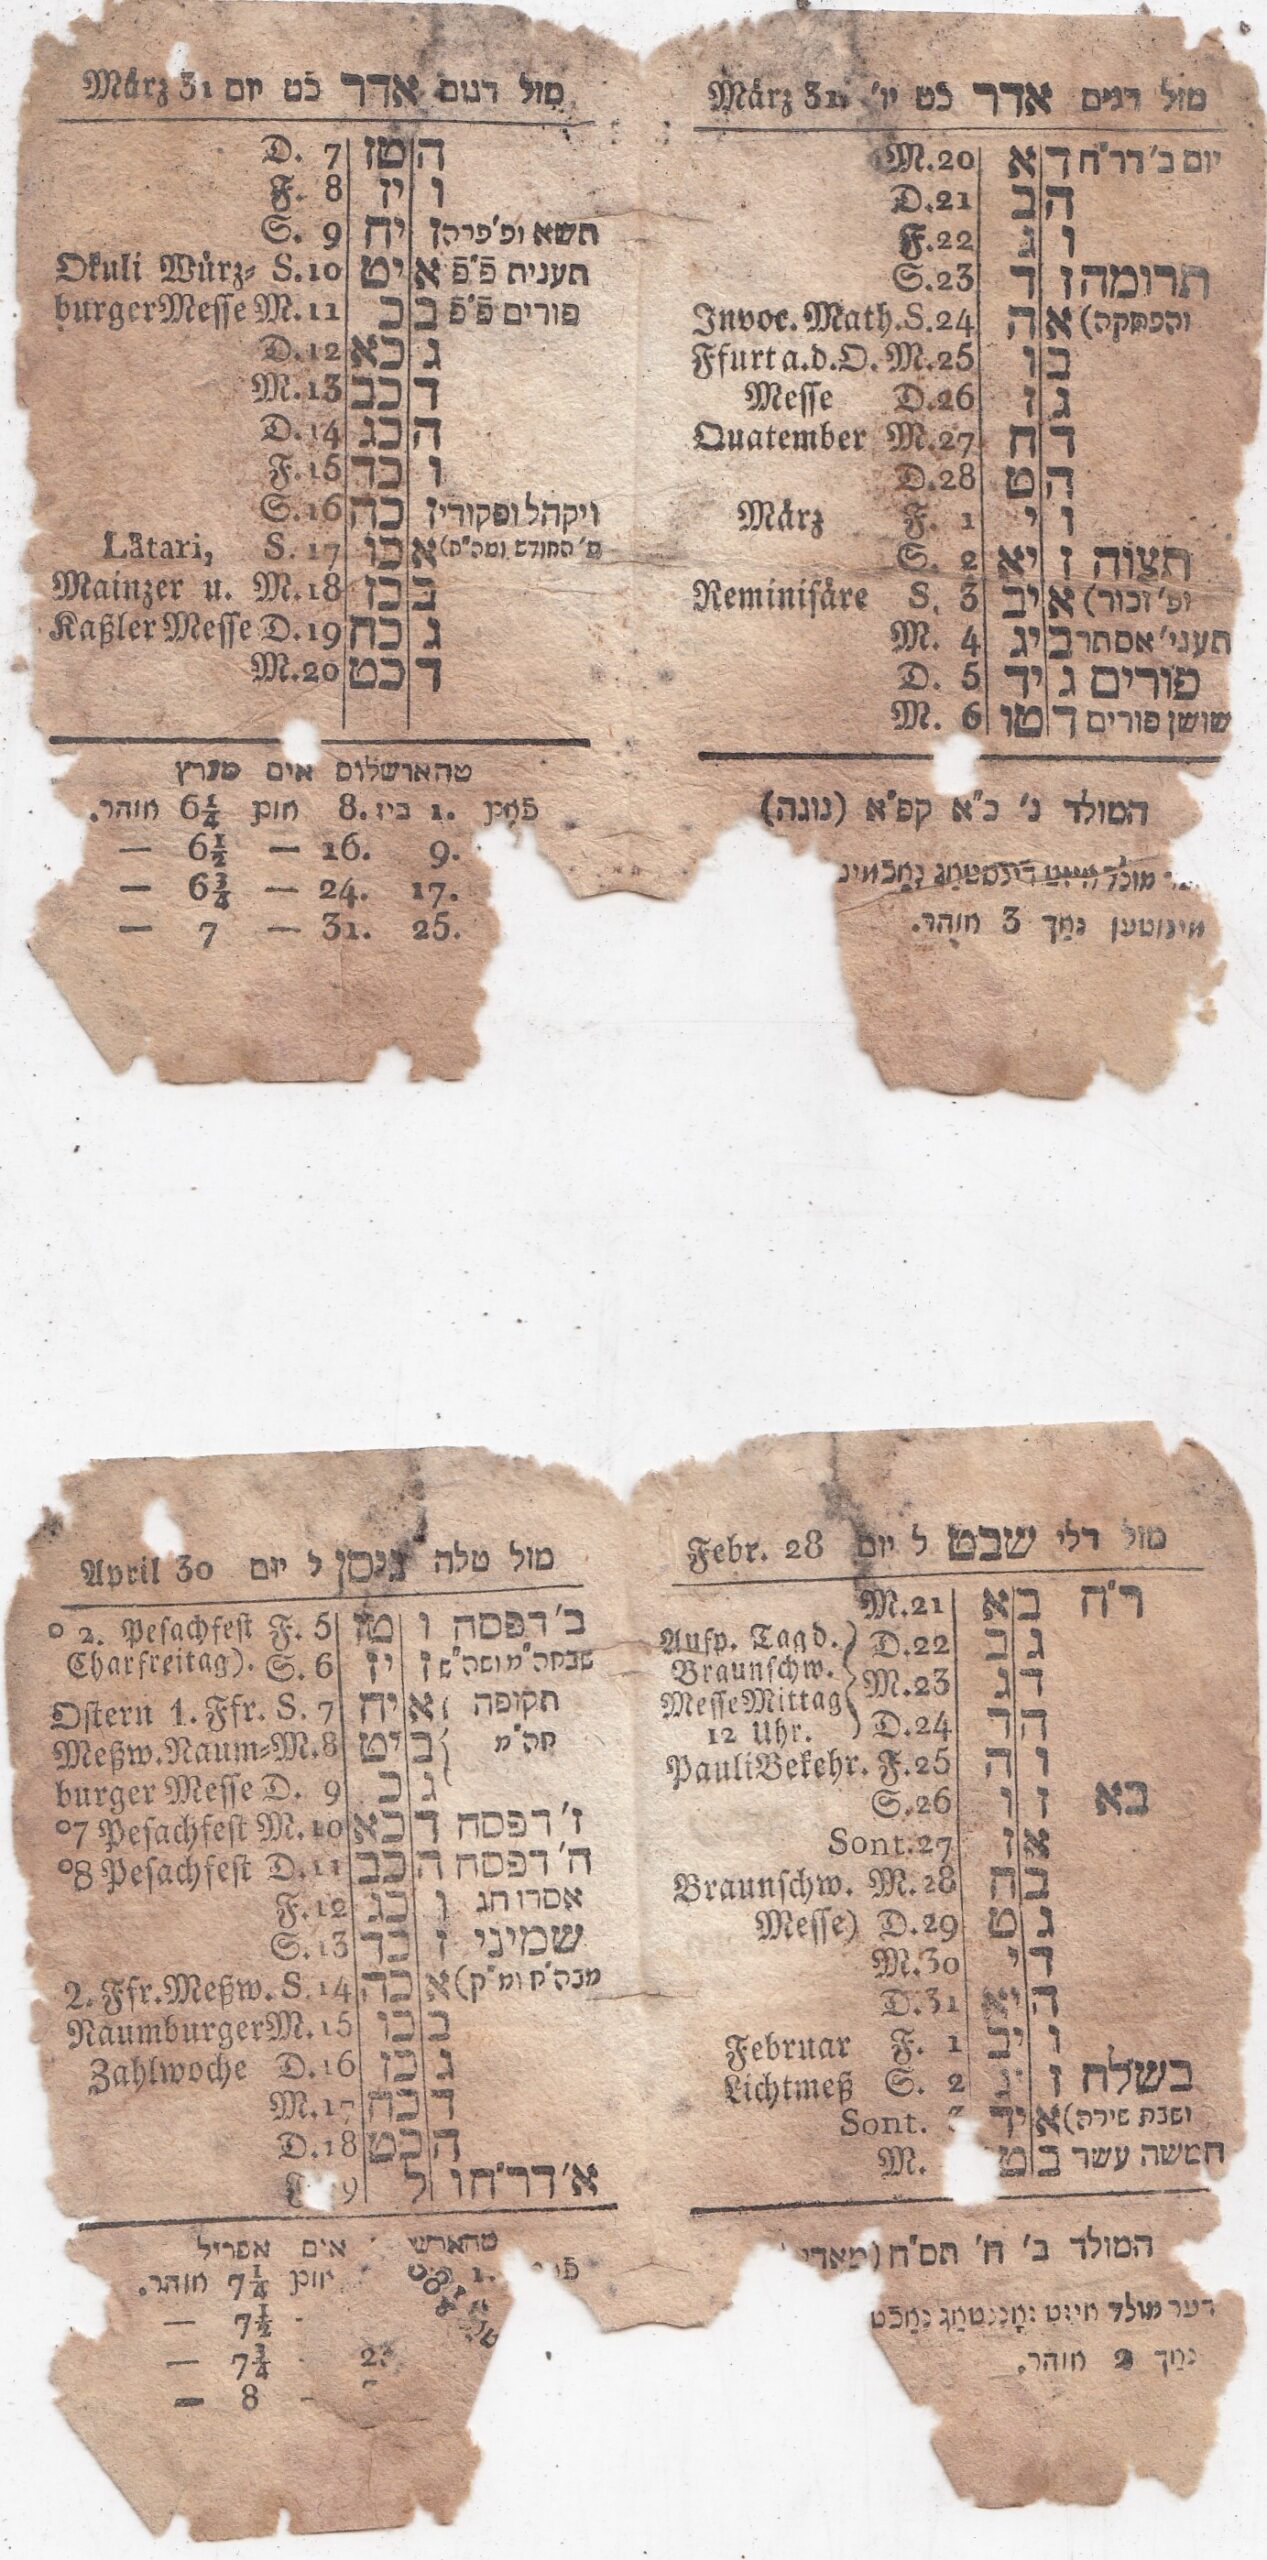 מזל דגים אדר כט יו' März 31.
יום ב' דר"ח ד א M.20
ה ב D.21
ו ג F.22
תרומה ז ד S.23
והפסקה) א ה Invoc. Math. S.24
ב ו Ffurt a.d.O. M.25
ג ז Messe D.26
ד ח Quatember M.27
ה ט D.28
ו י März F. 1
תצוה ז יא S. 2
ופ' זכור) א יב Reminisäre S. 3
תעני' אסתר ב יג M. 4
פורים ג יד D. 5
שושן פורים ד טו M. 6
המולד ג' כ"א קפ"א (נוגה)
מינוטען נאך 3 אוהר.
מזל דגים אדר כט יום März 31
ה טז D. 7
ו יז F. 8
תשא ופ' פרה ז יח S. 9
תענית פ"פ א יט Okuli Würz= S.10
פורים פ"פ ב כ burger Messe M.11
ג כא D.12
ד כב M.13
ה כג D.14
ו כד F.15
ויקהל ופקודי ז כה S.16
פ' החודש ומה"ח) א כו Lätari, S. 17
ב כז Mainzer u. M.18
ג כח Kaßler Messe D.19
ד כט M.20
טהארשלוס אים מערץ
פאן 1. ביז 8. אום 6¼ אוהר.
9. 16. — 6½ —
17. 24. — 6¾ —
25. 31. — 7 —
מזל דלי שבט ל יום Febr. 28
ר"ח ב א M.21
ג ב Ausp. Tag d. D.22
ד ג Braunschw. M.23
ה ד Messe Mittag 12 Uhr. D.24
ו ה Pauli Bekehr. F.25
בא ז ו S.26
א ז Sont.27
ב ח Braunschw. M.28
ג ט Messe) D.29
ד י M.30
ה יא D.31
ו יב Februar F. 1
בשלח ז יג Lichtmeß S. 2
ושבת שירה) א יד Sont.
חמשה עשר ב ט M.
המולד ב' ח' תס"ח (מאדי
דער מולד איזט זאננטאג נאכט
נאך 2 אוהר.
מזל טלה ניסן ל יום April 30
ב' דפסח ו טז o 2. Pesachfest F. 5
שבחה"מ ושה"ש ז יז Charfreitag). S. 6
תקופה א יח Ostern 1. Ffr. S. 7
חה"מ ב יט Meßw. Naum= M.8
ג כ burger Messe D. 9
ז' דפסח ד כא o7 Pesachfest M.10
ח' דפסח ה כב o8 Pesachfest D.11
אסרו חג ו כג F.12
שמיני ז כד S.13
מבה"ח ומ"ק) א כה 2. Ffr. Meßw. S.14
ב כו Naumburger M.15
ג כז Zahlwoche D.16
ד כח M.17
ה כט D.18
א' דר"ח ו ל 9
טהארש אים אפריל
1. אום 7¼ אוהר.
7½ —
2. 7¾ —
8 —